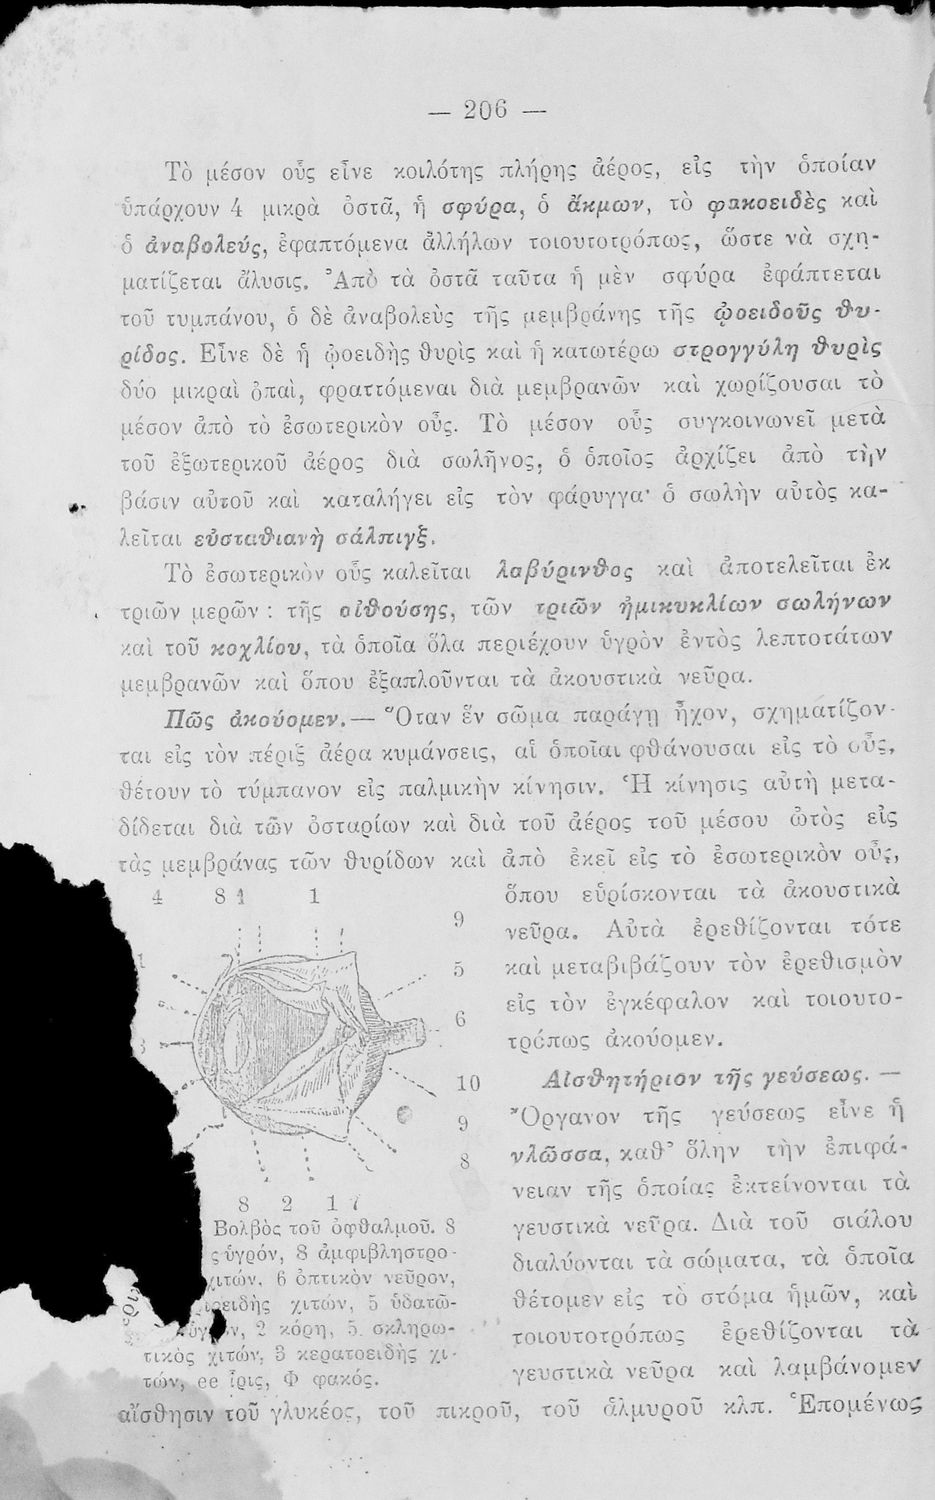 — 206 —
Τὸ μέσον οὖς εἶνε κοιλότης πλήρης ἀέρος, εἰς τὴν ὁποίαν
ὑπάρχουν 4 μικρὰ ὀστᾶ, ἡ σφύρα, ὁ ἄκμων, τὸ φακοειδὲς καὶ
ὁ ἀναβολεύς, ἐφαπτόμενα ἀλλήλων τοιουτοτρόπως, ὥστε νὰ σχη-
ματίζεται ἅλυσις. Ἀπὸ τὰ ὀστᾶ ταῦτα ἡ μὲν σφύρα ἐφάπτεται
τοῦ τυμπάνου, ὁ δὲ ἀναβολεὺς τῆς μεμβράνης τῆς ᾠοειδοῦς θυ-
ρίδος. Εἶνε δὲ ἡ ᾠοειδὴς θυρὶς καὶ ἡ κατωτέρω στρογγύλη θυρὶς
δύο μικραὶ ὀπαί, φραττόμεναι διὰ μεμβρανῶν καὶ χωρίζουσαι τὸ
μέσον ἀπὸ τὸ ἐσωτερικὸν οὖς. Τὸ μέσον οὖς συγκοινωνεῖ μετὰ
τοῦ ἐξωτερικοῦ ἀέρος διὰ σωλῆνος, ὁ ὁποῖος ἀρχίζει ἀπὸ τὴν
βάσιν αὐτοῦ καὶ καταλήγει εἰς τὸν φάρυγγα· ὁ σωλὴν αὐτὸς κα-
λεῖται εὐσταθιανὴ σάλπιγξ.
Τὸ ἐσωτερικὸν οὖς καλεῖται λαβύρινθος καὶ ἀποτελεῖται ἐκ
τριῶν μερῶν : τῆς αἰθούσης, τῶν τριῶν ἡμικυκλίων σωλήνων
καὶ τοῦ κοχλίου, τὰ ὁποῖα ὅλα περιέχουν ὑγρὸν ἐντὸς λεπτοτάτων
μεμβρανῶν καὶ ὅπου ἐξαπλοῦνται τὰ ἀκουστικὰ νεῦρα.
Πῶς ἀκούομεν.— Ὅταν ἓν σῶμα παράγῃ ἦχον, σχηματίζον-
ται εἰς τὸν πέριξ ἀέρα κυμάνσεις, αἱ ὁποῖαι φθάνουσαι εἰς τὸ οὖς,
θέτουν τὸ τύμπανον εἰς παλμικὴν κίνησιν. Ἡ κίνησις αὐτὴ μετα-
δίδεται διὰ τῶν ὀσταρίων καὶ διὰ τοῦ ἀέρος τοῦ μέσου ὠτὸς εἰς
τὰς μεμβράνας τῶν θυρίδων καὶ ἀπὸ ἐκεῖ εἰς τὸ ἐσωτερικὸν οὖς,
ὅπου εὑρίσκονται τὰ ἀκουστικὰ
νεῦρα. Αὐτὰ ἐρεθίζονται τότε
καὶ μεταβιβάζουν τὸν ἐρεθισμὸν
εἰς τὸν ἐγκέφαλον καὶ τοιουτο-
τρόπως ἀκούομεν.
4 8 1 1
9
5
6
10
9
8
8 2 1 7
Βολβὸς τοῦ ὀφθαλμοῦ. 8
ὑγρόν, 8 ἀμφιβληστρο-
χιτών, 6 ὀπτικὸν νεῦρον,
χιτών, 5 ὑδατῶ-
2 κόρη, 5. σκληρω-
τικὸς χιτών, 3 κερατοειδὴς χι-
τών, ee ἶρις, Φ φακός.
Αἰσθητήριον τῆς γεύσεως. —
Ὄργανον τῆς γεύσεως εἶνε ἡ
γλῶσσα, καθ' ὅλην τὴν ἐπιφά-
νειαν τῆς ὁποίας ἐκτείνονται τὰ
γευστικὰ νεῦρα. Διὰ τοῦ σιάλου
διαλύονται τὰ σώματα, τὰ ὁποῖα
θέτομεν εἰς τὸ στόμα ἡμῶν, καὶ
τοιουτοτρόπως ἐρεθίζονται τὰ
γευστικὰ νεῦρα καὶ λαμβάνομεν
αἴσθησιν τοῦ γλυκέος, τοῦ πικροῦ, τοῦ ἁλμυροῦ κλπ. Ἑπομένως